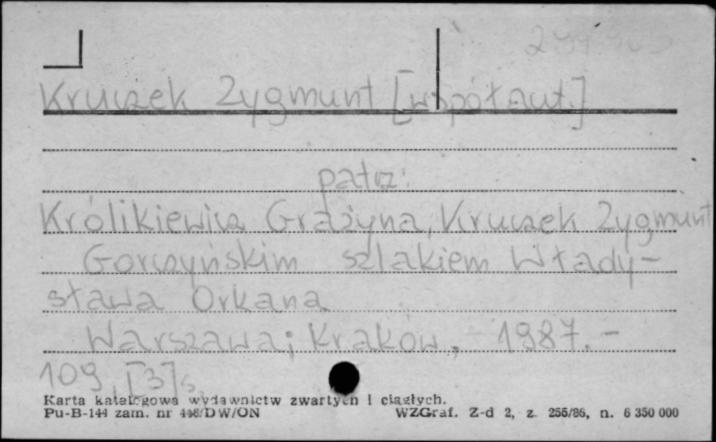 Kruczek Zygmunt [współaut.]
patrz:
Królikiewicz Grażyna, Kruczek Zygmunt
Gorczyńskim szlakiem Włady-
sława Orkana
Warszawa; Kraków, 1987. -
109, [3] s.
Karta katalogowa wydawnictw zwartych i ciągłych.
Pu-B-144 zam. nr 446/DW/ON WZGraf. Z-d 2, z. 255/86, n. 6 350 000